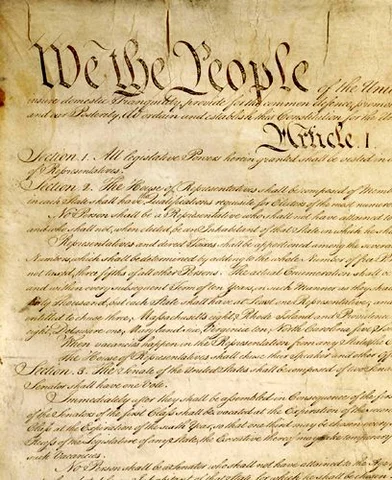 We the People of the Unit
insure domestic Tranquility, provide for the common defence, promo
and our Posterity, do ordain and establish this Constitution for the Un
Article. I.
Section. 1. All legislative Powers herein granted shall be vested in
of Representatives.
Section. 2. The House of Representatives shall be composed of Mem
in each State shall have Qualifications requisite for Electors of the most numero
No Person shall be a Representative who shall not have attained
and who shall not, when elected, be an Inhabitant of that State in which he sha
Representatives and direct Taxes shall be apportioned among the sever
Numbers, which shall be determined by adding to the whole Number of free P
not taxed, three fifths of all other Persons. The actual Enumeration shall
and within every subsequent Term of ten Years, in such Manner as they sha
thirty Thousand, but each State shall have at Least one Representative; an
entitled to chuse three, Massachusetts eight, Rhode Island and Providence
eight, Delaware one, Maryland six, Virginia ten, North Carolina five, S
When vacancies happen in the Representation from any State, the E
The House of Representatives shall chuse their Speaker and other Off
Section. 3. The Senate of the United States shall be composed of two Sena
Senator shall have one Vote.
Immediately after they shall be assembled in Consequence of the firs
of the Senators of the first Class shall be vacated at the Expiration of the seco
Class at the Expiration of the sixth Year, so that one third may be chosen every se
Recess of the Legislature of any State, the Executive thereof may make temporar
such Vacancies.
No Person shall be a Senator who shall not have attained to the Age